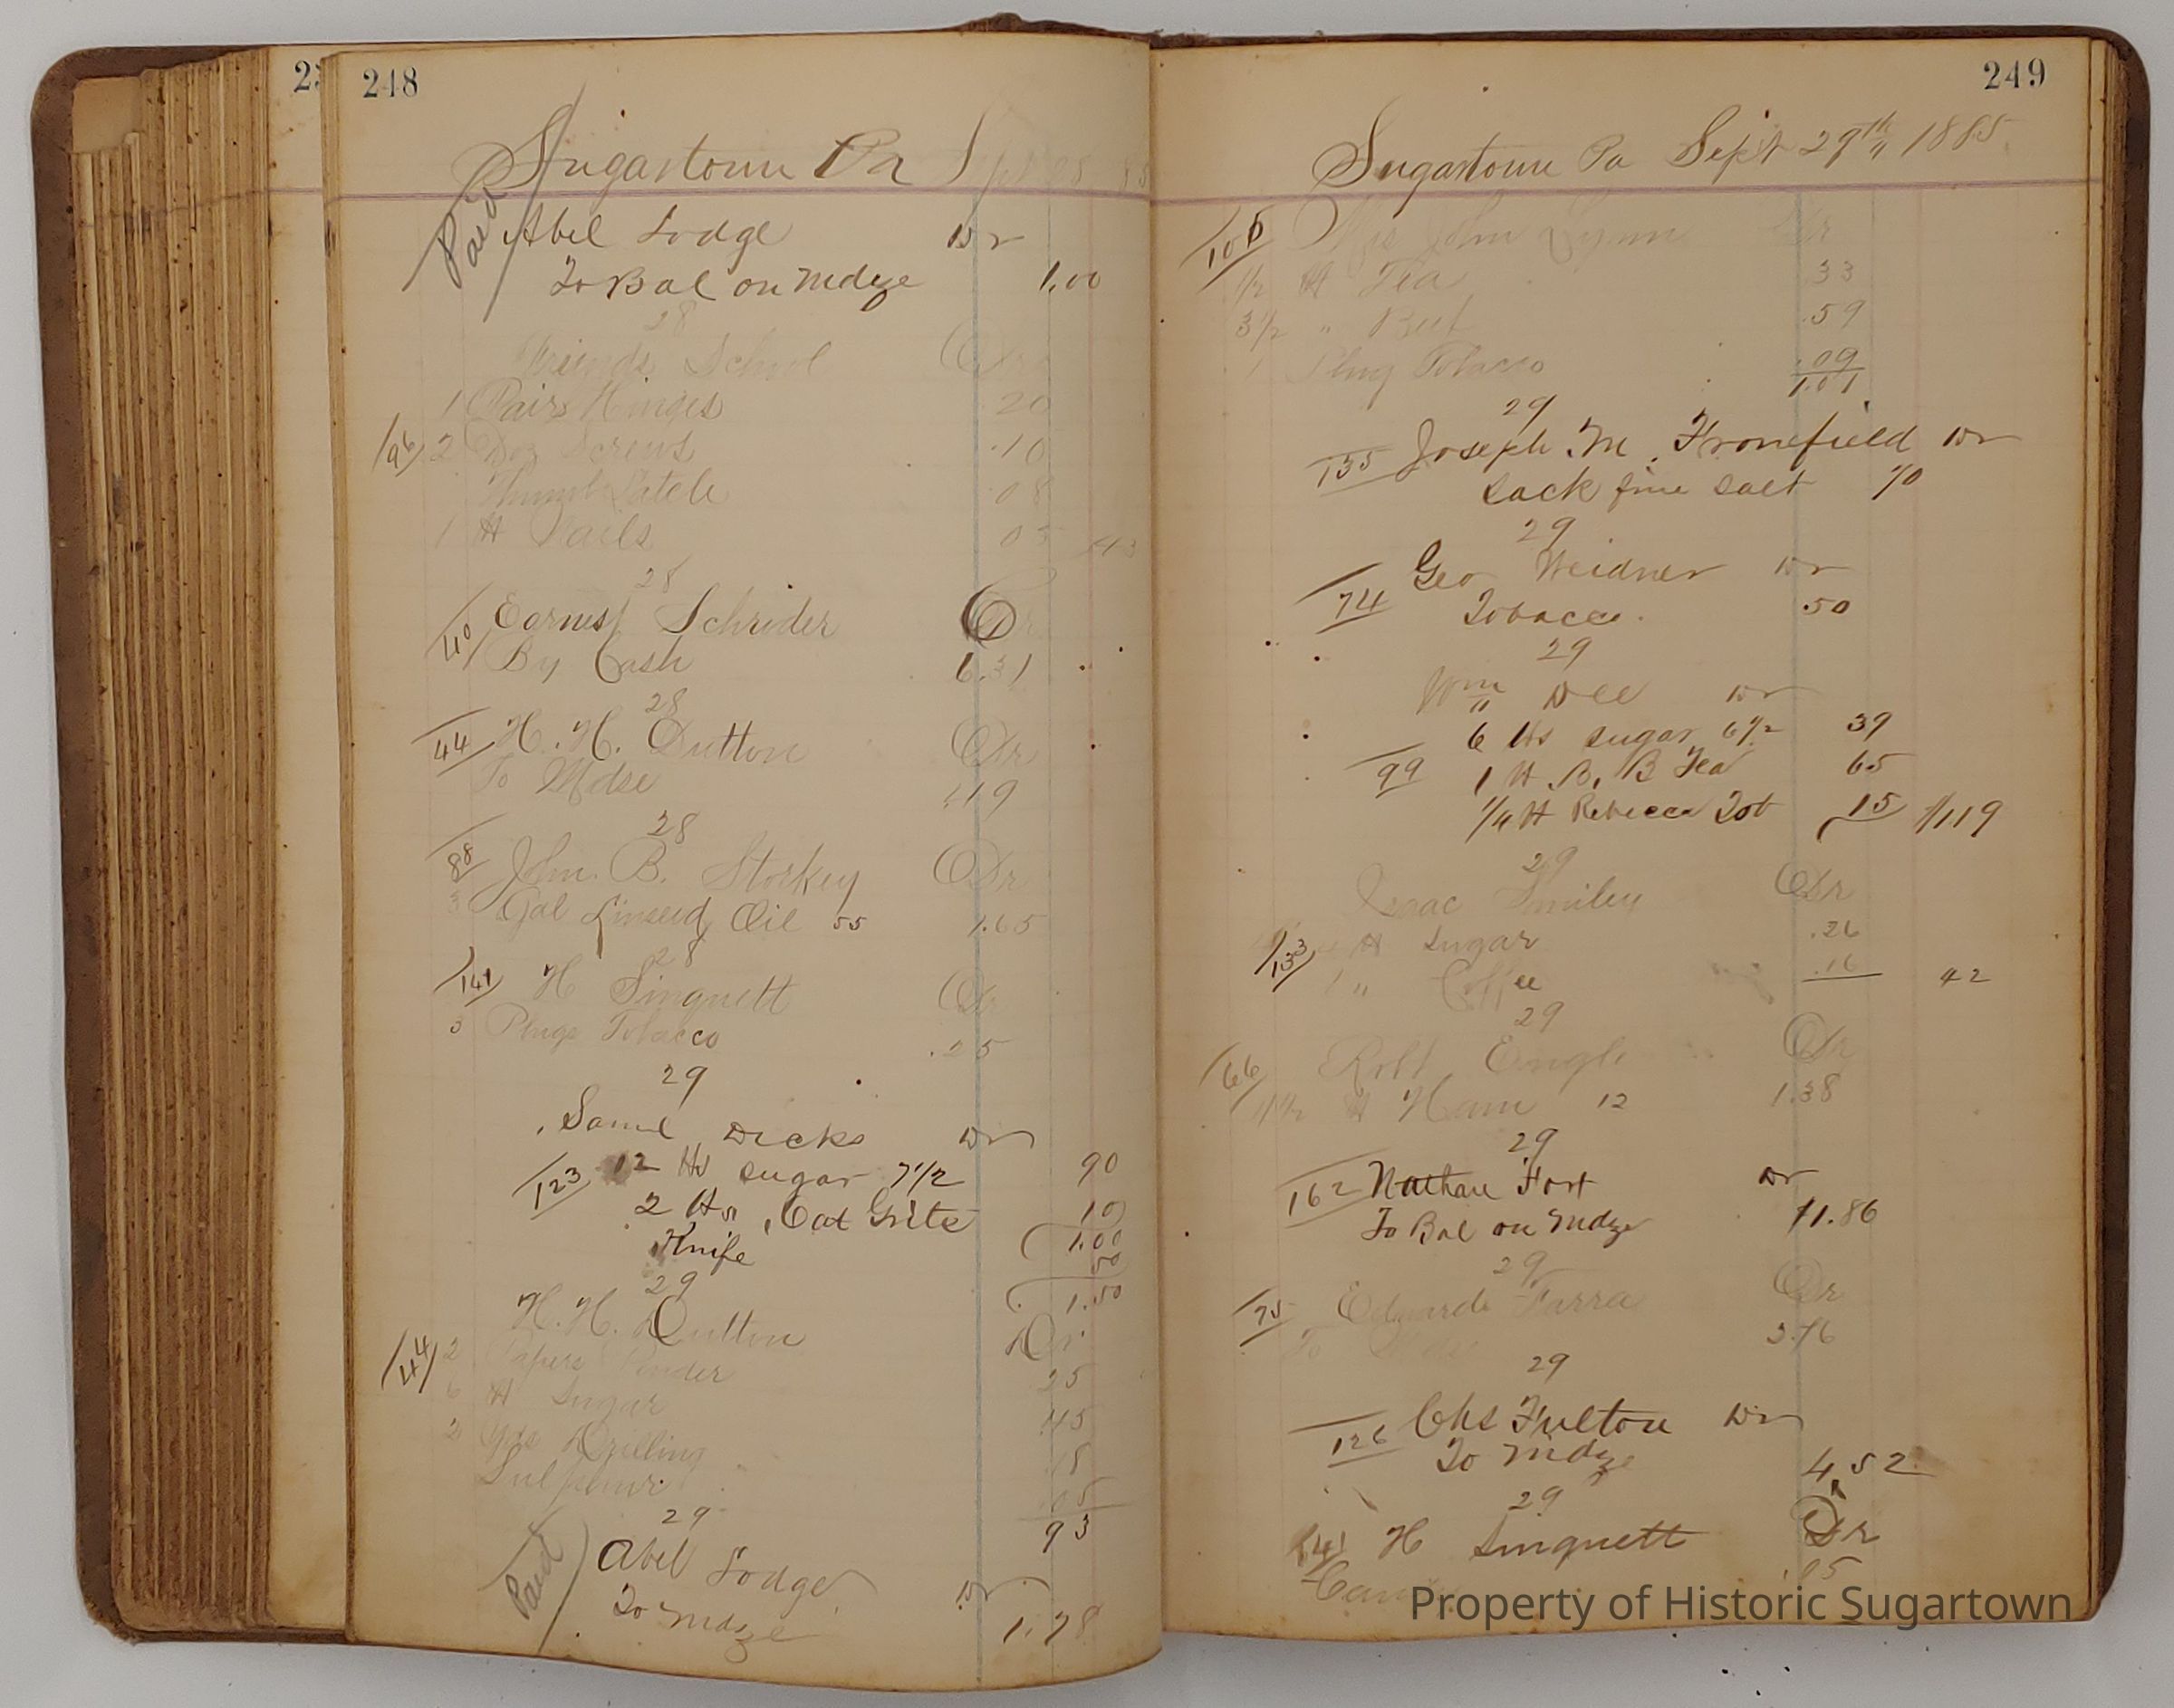 248
Sugartown Pa Sept 28 85
Paid
Abel Lodge Dr
To Bal on Mdze 1.00
28
Friends School Dr
1 Pair Hinges 20
96 2 Doz Screws .10
Thumb Latch 08
1 ℔ Nails 05 43
28
40 Earnest Schrider Cr
By Cash 6.31
28
44 H. H. Dutton Dr
To Mdse .19
28
88 John B. Storkey Dr
3 Gal Linseed Oil 55 1.65
28
141 H Singuett Dr
3 Plugs Tobacco .25
29
Saml Dicks Dr
123 12 ℔s sugar 7 1/2 90
2 ℔s Oat Grits 10
1.00
Knife 50
29 1.50
H. H. Dutton Dr
44 2 Papers Powder 25
6 ℔ Sugar 45
2 Yds Drilling 18
Sulphur 05
29 93
Paid
Abel Lodge Dr
To Mdze 1.78
249
Sugartown Pa Sept 29th 1885
105 Mrs John Lynn Dr
1/2 ℔ Tea 33
3 1/2 " Beef .59
1 Plug Tobacco .09
1.01
29
135 Joseph M. Fronefield Dr
Sack fine salt 10
29
Geo Weidner Dr
74 Tobacco .50
29
Wm Dee Dr
6 ℔s sugar 6 1/2 39
99 1 ℔ B. B Tea 65
1/4 ℔ Rebecca Tob 15 1/119
29
Isaac Smiley Dr
133 4 ℔ Sugar .26
1 " Coffee .16 42
29
66 Robt Engle Dr
11 1/2 ℔ Ham 12 1.38
29
162 Nathan Fort Dr
To Bal on Mdze 11.86
29
75 Edward Farra Cr
To Mdse 3.76
29
126 Chs Fulton Dr
To Mdze 4.52
29
141 H Singuett Dr
.05
Property of Historic Sugartown